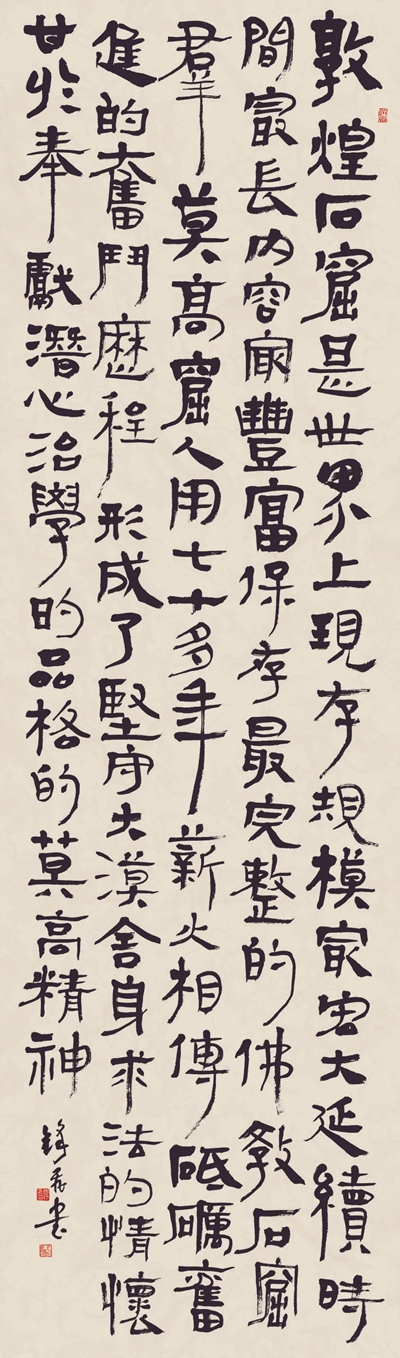 敦煌石窟是世界上現存規模㝡宏大延續時
間㝡長内容㝡豐富保存最完整的佛教石窟
羣莫高窟人用七十多年薪火相傳砥礪奮
進的奮鬥歷程形成了堅守大漠舍身求法的情懷
甘於奉獻潛心治學的品格的莫高精神
书